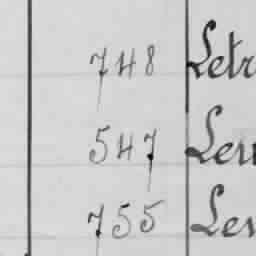 748 Letr
547 Ler
755 Le